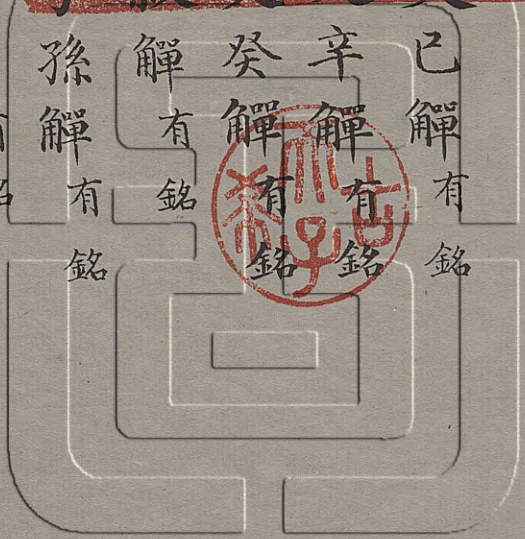 己觶有銘
辛觶有銘
癸觶有銘
觶有銘
孫觶有銘